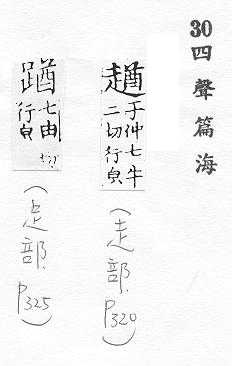 30 四聲篇海
趥 于仲七牛
二切行皃
(走部. P320)
七由切
行皃
(足部. P325)